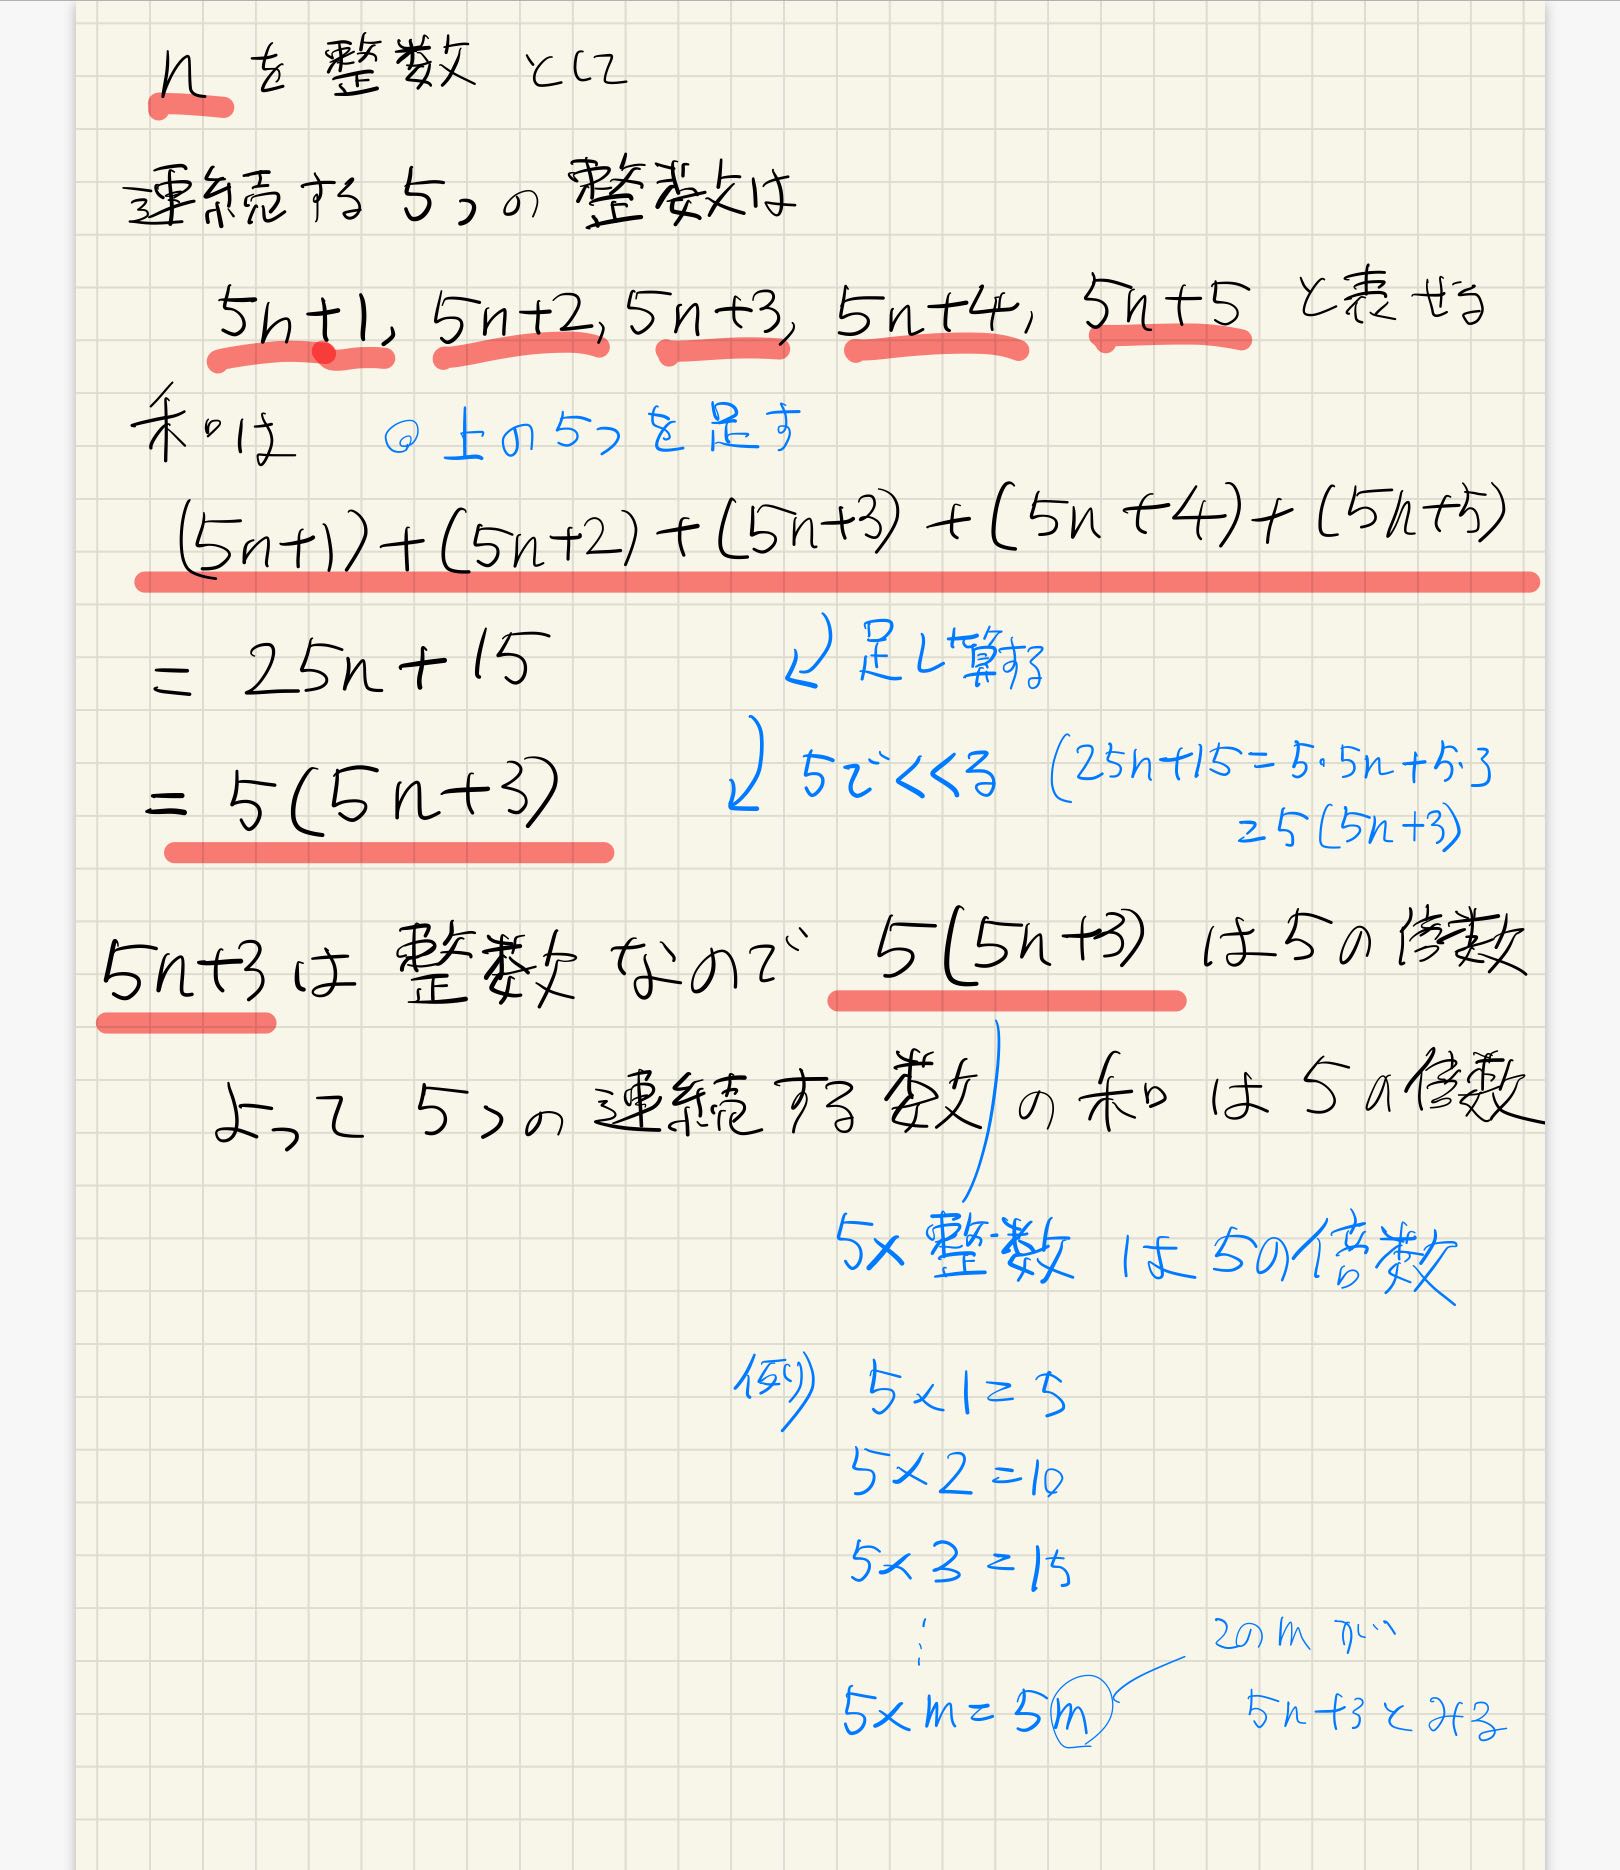 nを整数として
連続する5つの整数は
5n+1, 5n+2, 5n+3, 5n+4, 5n+5 と表せる
和は ◎上の5つを足す
(5n+1)+(5n+2)+(5n+3)+(5n+4)+(5n+5)
= 25n+15 足し算する
= 5(5n+3) 5でくくる (25n+15=5・5n+5・3
=5(5n+3)
5n+3は整数なので 5(5n+3)は5の倍数
よって5つの連続する数の和は5の倍数
5×整数は5の倍数
例) 5×1=5
5×2=10
5×3=15
⋮
このmが
5×m=5m 5n+3とみる